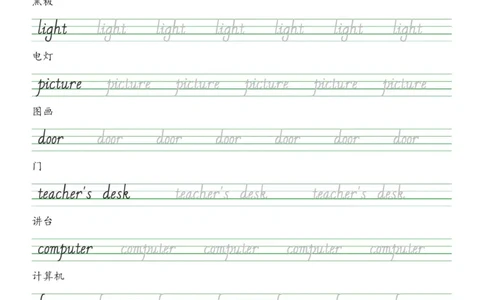 黑板
light light light light light light light
电灯
picture picture picture picture picture picture
图画
door door door door door door door
门
teacher's desk teacher's desk teacher's desk
讲台
computer computer computer computer computer
计算机